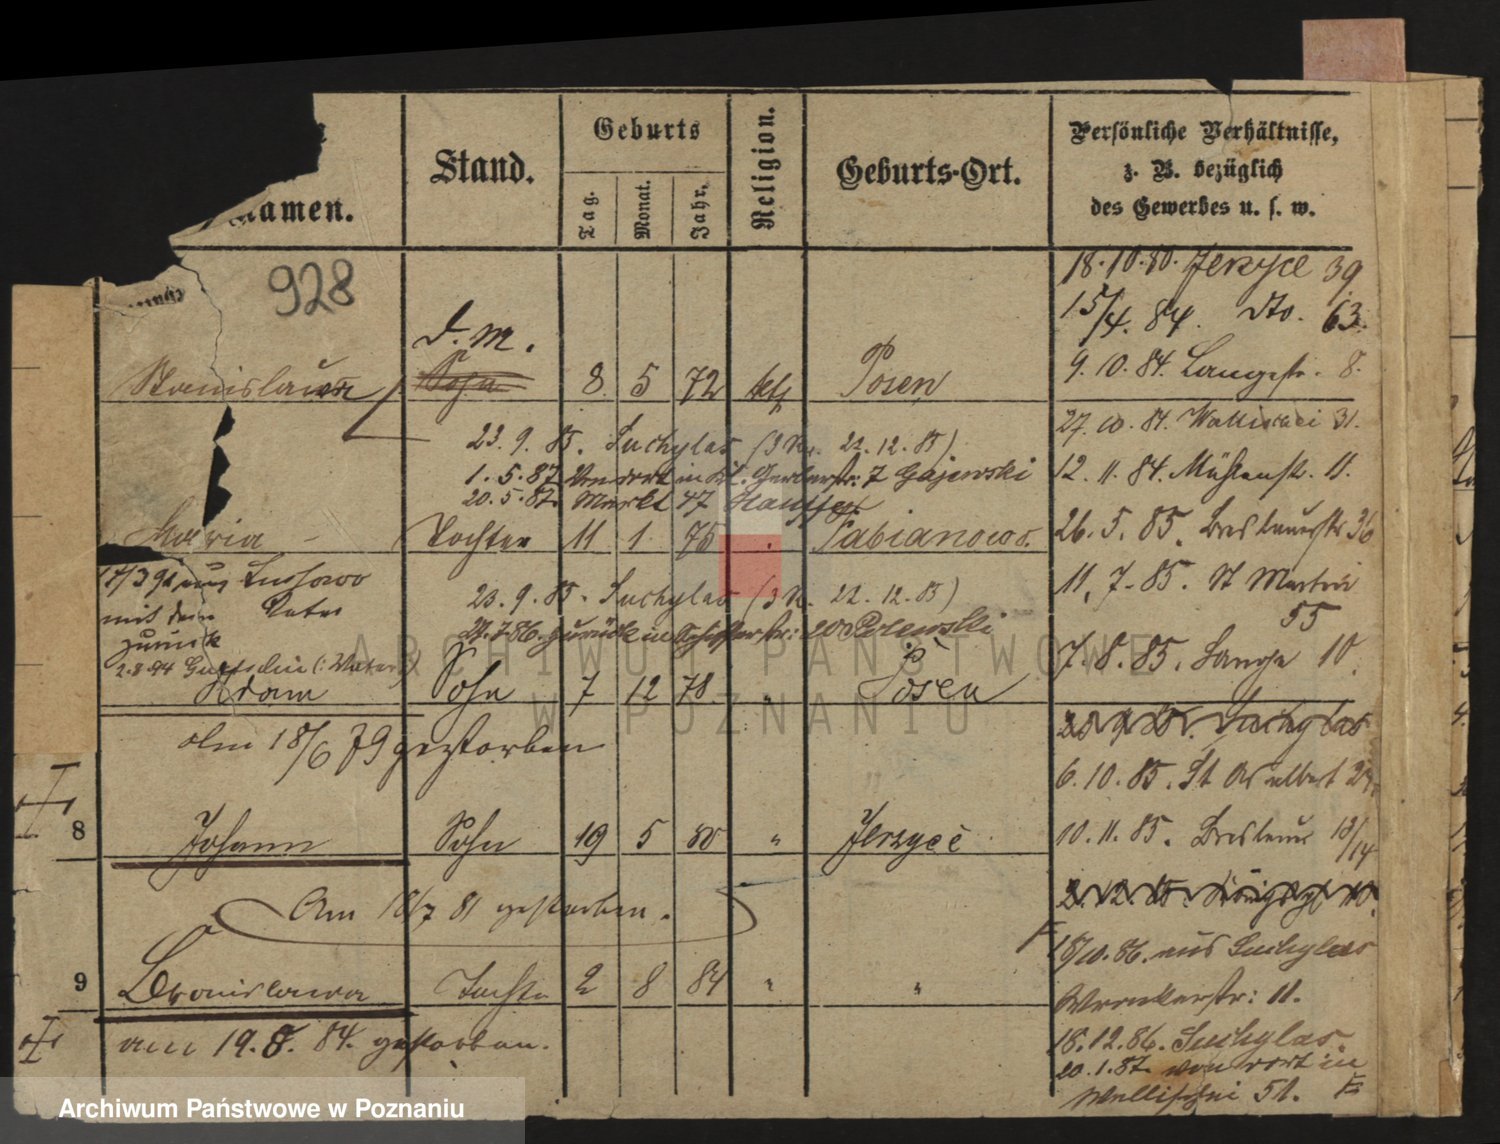 Namen.
Stand.
Geburts
Tag.
Monat.
Jahr.
Religion.
Geburts-Ort.
Persönliche Verhältnisse,
z. B. bezüglich
des Gewerbes u. s. w.
928
18.10.80. Jerzyce 39
15/4. 84. dto. 63.
9.10.84. Langestr. 8.
d. M.
Stanislaus Sohn 8 5 72 kth Posen
27.10.84. Wallischei 31.
23.9.85. Suchylas (3 N. 22.12.85)
12.11.84. Mühlenstr. 11.
1.5.87 Von dort in Kl. Gerberstr: 7 Gajewski
20.5.87. Markt 47
Maria Tochter 11 1 75 Fabianowo.
26.5.85. Breslauerstr 36
mit dem Vater
zurück
23.9.85. Suchylas (3 N. 22.12.85)
11.7.85. St Martin
55
zurück in
7.8.85. Lange 10.
Adam Sohn 7 12 78 " Posen
am 18/6 79 gestorben
23.9.85. Suchylas
6.10.85. St Adalbert
8 Johann Sohn 19 5 80 " Jerzyce
10.11.85. Breslauer 13/14
Am 18/7 81 gestorben.
18/10.86. aus Suchylas
9 Bronislawa Tochter 2 8 84 " "
Wronkerstr: 11.
am 19.8.84. gestorben.
18.12.86. Suchylas.
20.1.87. von dort in
Wallischei 51.
ARCHIWUM PAŃSTWOWE
W POZNANIU
Archiwum Państwowe w Poznaniu